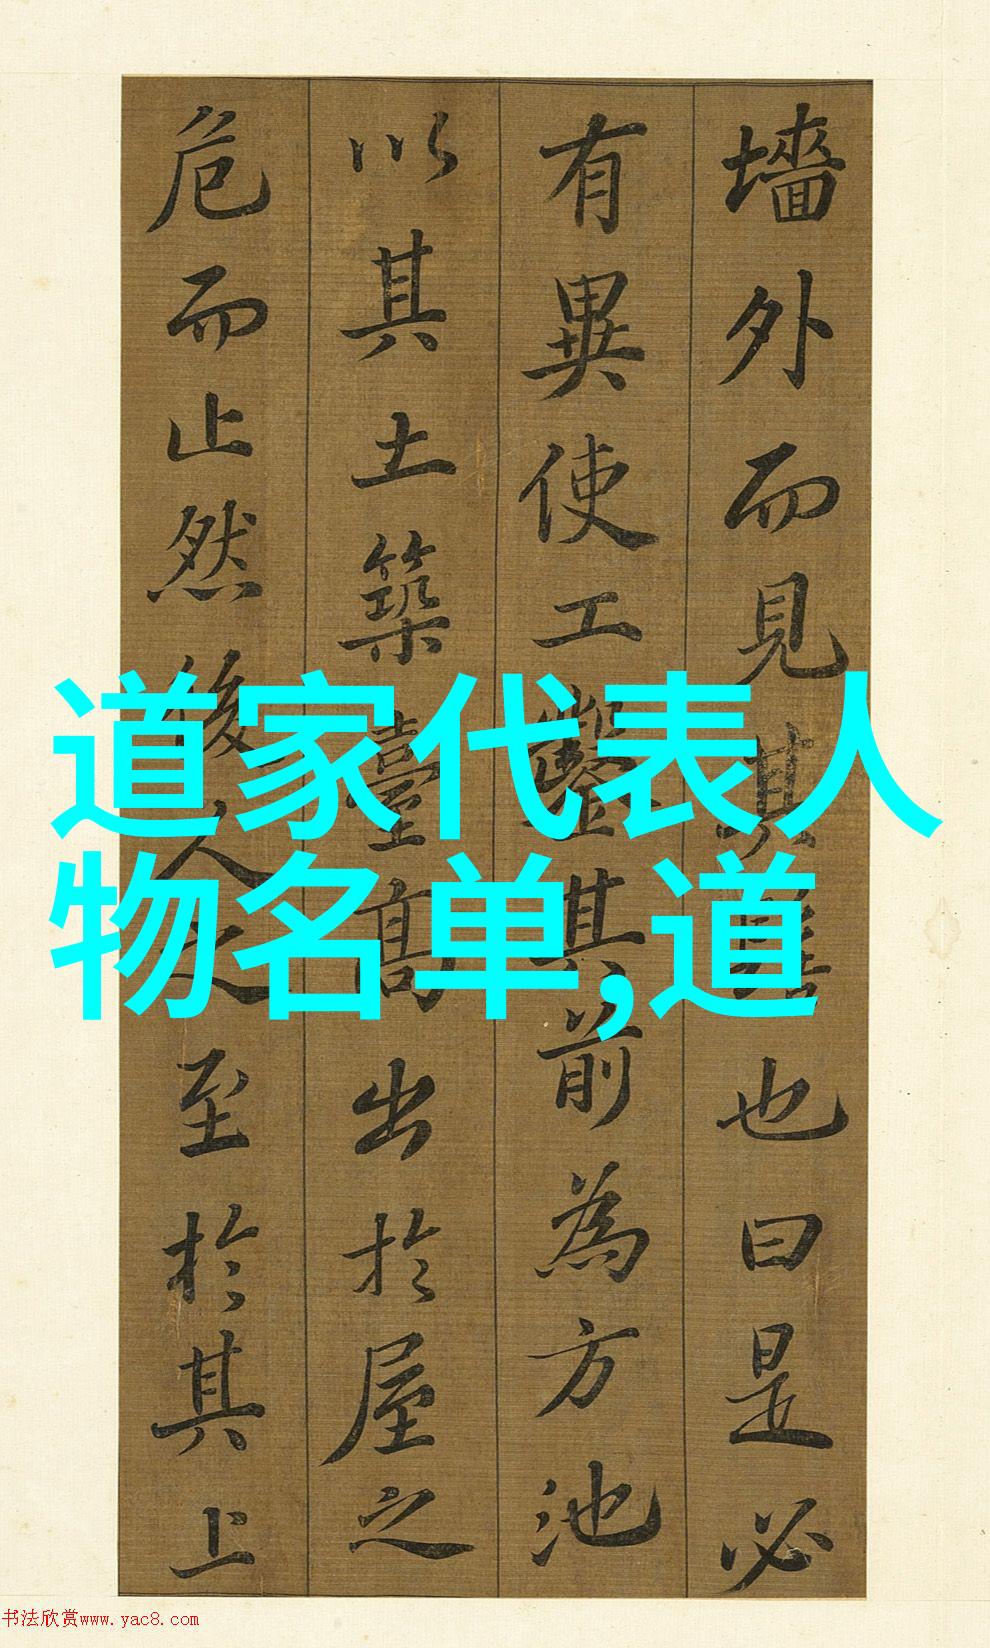 墻外而見其髻也曰是必
有異使工鑿其前為方池
以其土築臺高出於屋之
危而止然後人之至於其上
道家代表人
物名单,道
书法欣赏www.yac8.com